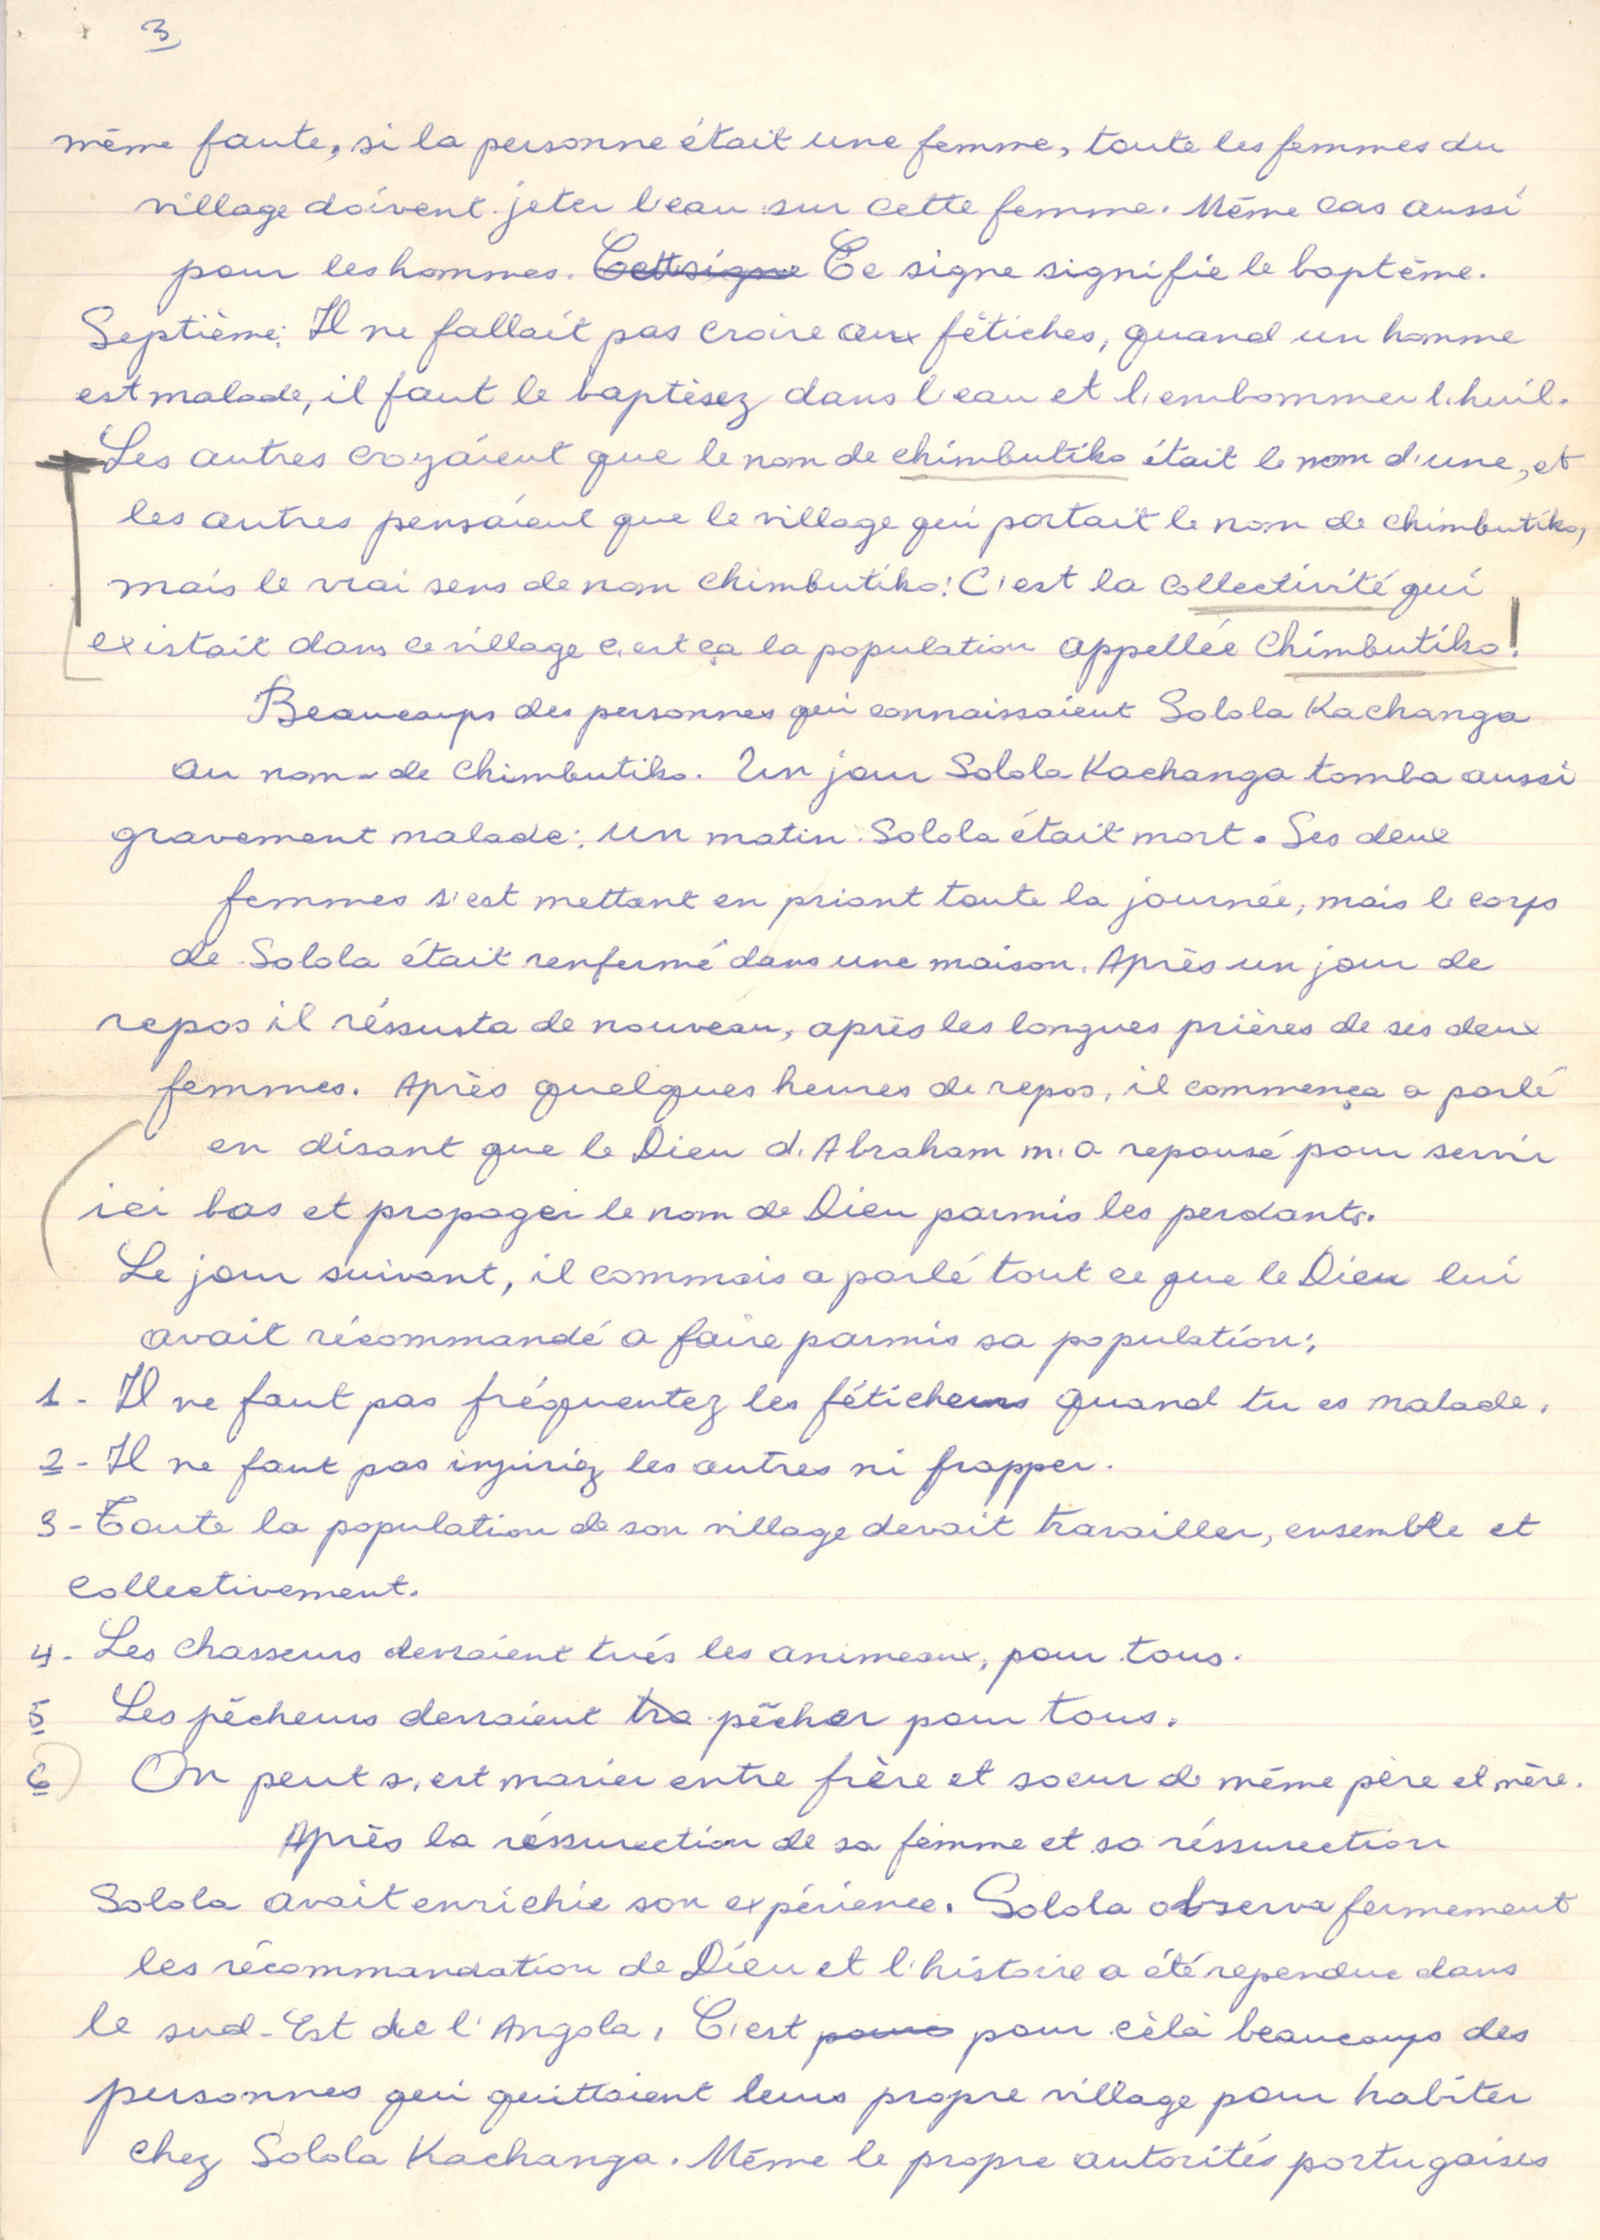 3
même faute, si la personne était une femme, toute les femmes du
village doivent jeter l'eau sur cette femme. Même cas aussi
pour les hommes. Cett signe Ce signe signifie le baptême.
Septième: Il ne fallait pas croire aux fétiches, quand un homme
est malade, il faut le baptèsez dans l'eau et l'embommer l'huil.
Les autres croyaient que le nom de chimbutiko était le nom d'une, et
les autres pensaient que le village qui portait le nom de chimbutiko,
mais le vrai sens de nom chimbutiko! C'est la collectivité qui
existait dans ce village c'est ça la population appellée Chimbutiko!
Beaucoups des personnes qui connaissaient Solola Kachanga
au nom-de chimbutiko. Un jour Solola Kachanga tomba aussi
gravement malade: un matin Solola était mort. Ses deux
femmes s'est mettant en priant toute la journée, mais le corps
de Solola était renfermé dans une maison. Après un jour de
repos il réssusta de nouveau, après les longues prières de ses deux
femmes. Après quelques heures de repos, il commença a parlé
en disant que le Dieu d'Abraham m'a repousé pour servir
ici bas et propager le nom de Dieu parmis les perdants.
Le jour suivant, il commais a parlé tout ce que le Dieu lui
avait récommandé a faire parmis sa population:
1 - Il ne faut pas fréquentez les féticheurs quand tu es malade.
2 - Il ne faut pas injuriez les autres ni frapper.
3 - Toute la population de son village devait travailler, ensemble et
collectivement.
4 - Les chasseurs devraient tués les animeaux, pour tous.
5 Les pêcheurs devraient tra pêcher pour tous.
6) On peut s'est marier entre frère et soeur de même père et mère.
Après la réssurection de sa femme et sa réssurection
Solola avait enrichie son expérience. Solola observa fermement
les récommandation de Dieu et l'histoire a été rependue dans
le sud-Est de l'Angola. C'est pour cèlà beaucoups des
personnes qui quittaient leurs propre village pour habiter
chez Solola Kachanga. Même le propre autorités portugaises